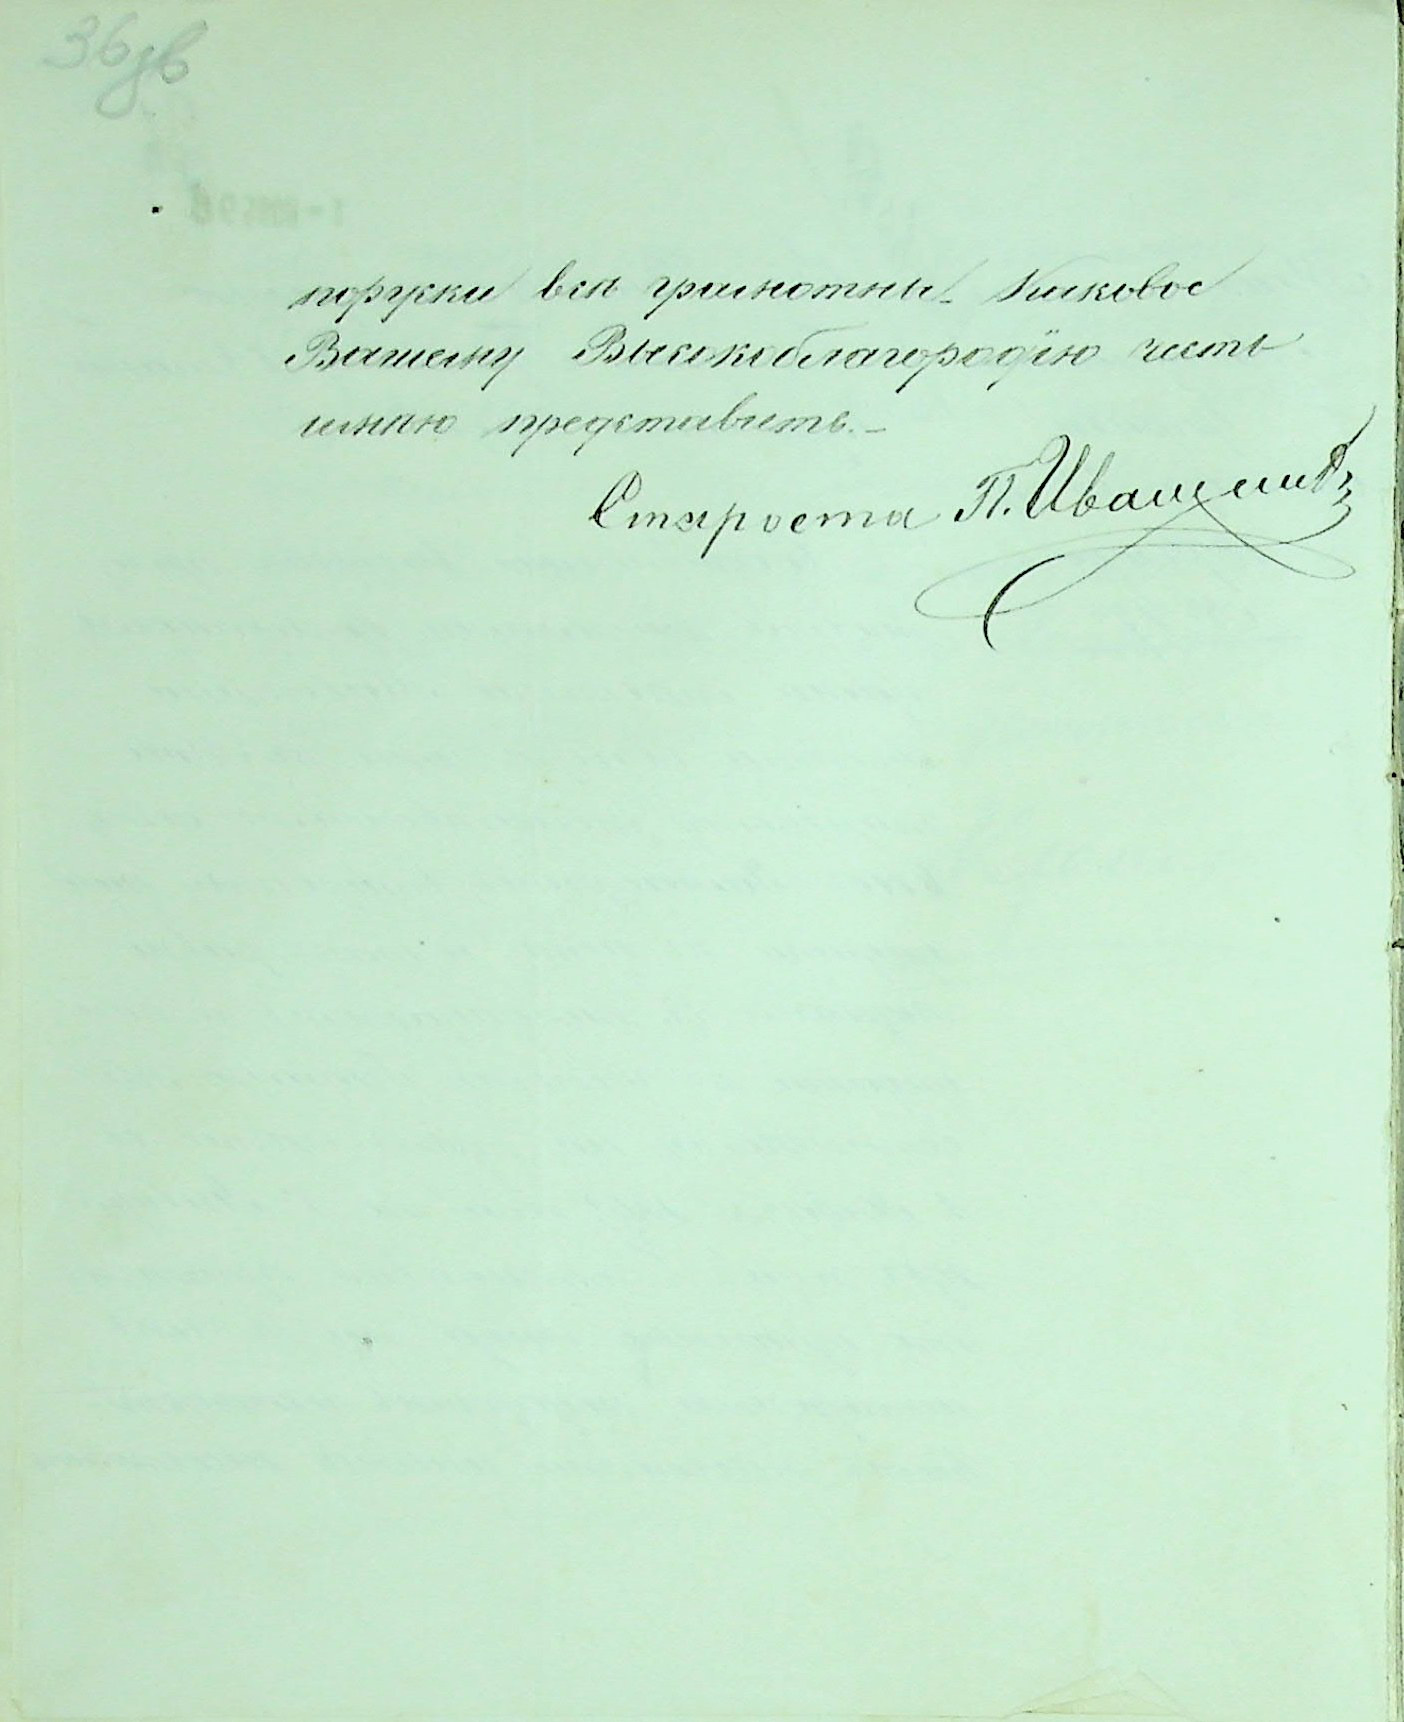 36 зв
поруки вси грамотны. Каковое
Вашему Высокоблагородію честь
имѣю представить. –
Староста П. Ивашенко